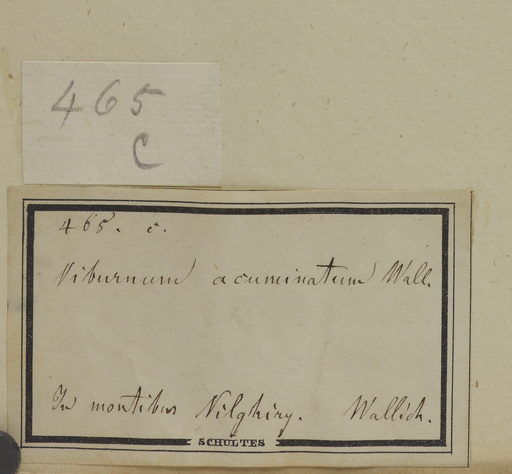 465
C
465. c.
Viburnum acuminatum Wall.
In montibus Nilghiry. Wallich.
SCHULTES